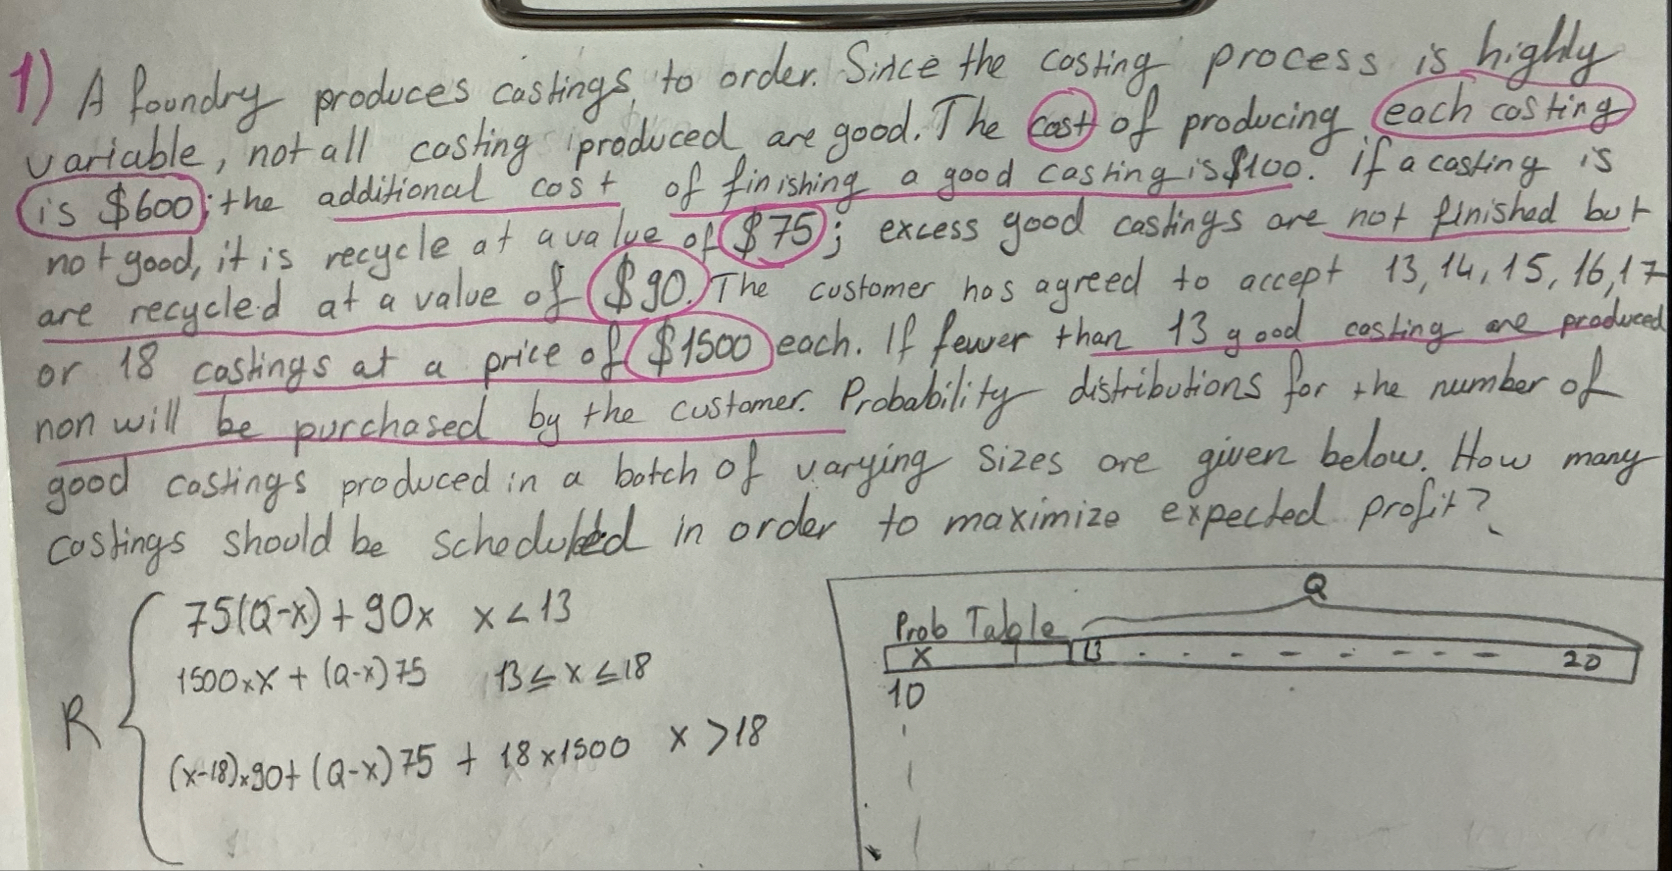 1) A foundry produces castings to order. Since the casting process is highly
variable, not all casting produced are good. The cost of producing each casting
is $600; the additional cost of finishing a good casting is $100. If a casting is
not good, it is recycle at a value of $75; excess good castings are not finished but
are recycled at a value of $90. The customer has agreed to accept 13, 14, 15, 16, 17
or 18 castings at a price of $1500 each. If fewer than 13 good casting are produced
non will be purchased by the customer. Probability distributions for the number of
good castings produced in a batch of varying sizes are given below. How many
castings should be scheduled in order to maximize expected profit?
R
75(Q-x) + 90x x < 13
1500xX + (Q-x)75 13 ≤ x ≤ 18
(x-18)x90 + (Q-x)75 + 18x1500 x > 18
Q
Prob Table
x 13 20
10